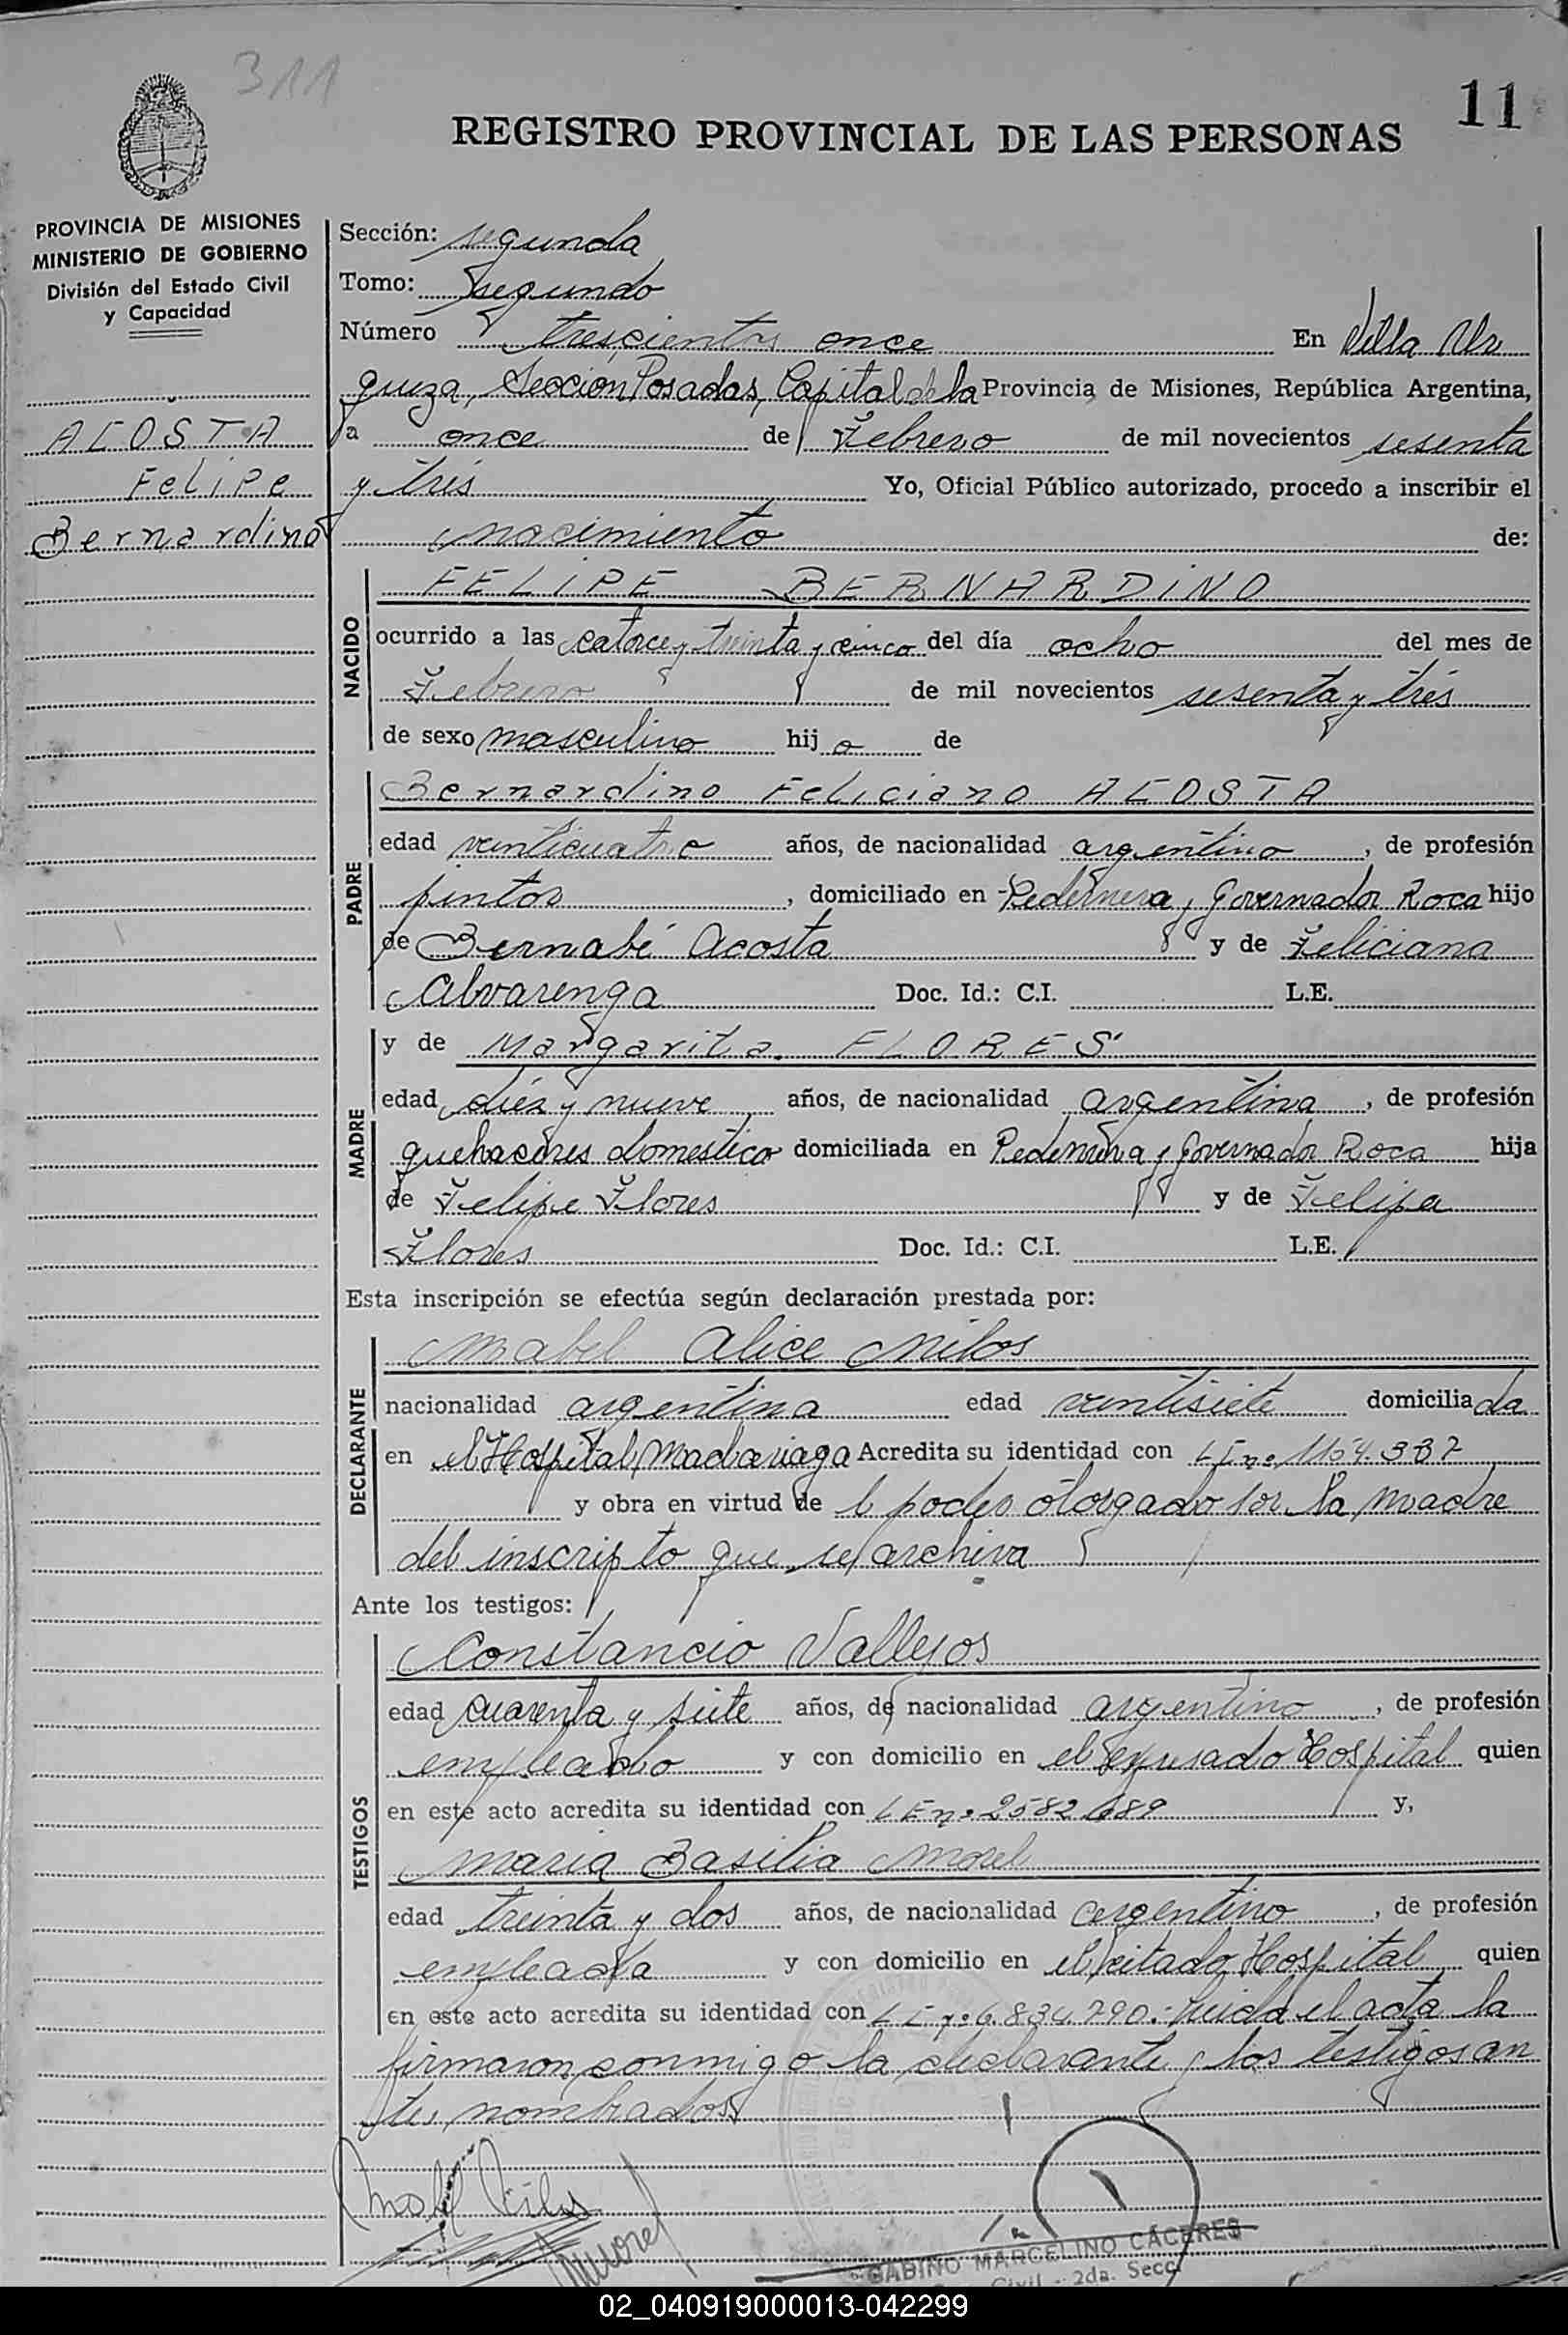 311
11
REGISTRO PROVINCIAL DE LAS PERSONAS
PROVINCIA DE MISIONES
MINISTERIO DE GOBIERNO
División del Estado Civil
y Capacidad
ACOSTA
Felipe
Bernardino
Sección: segunda
Tomo: segundo
Número trescientos once En Villa Ur
quiza, Sección Posadas, Capital de la Provincia de Misiones, República Argentina,
a once de Febrero de mil novecientos sesenta
y trés Yo, Oficial Público autorizado, procedo a inscribir el
nacimiento de:
NACIDO
FELIPE BERNARDINO
ocurrido a las catorce y treinta y cinco del día ocho del mes de
Febrero de mil novecientos sesenta y trés
de sexo masculino hijo de
PADRE
Bernardino Feliciano ACOSTA
edad venticuatro años, de nacionalidad argentino, de profesión
pintor, domiciliado en Pedernera y Governador Roca hijo
de Bernabé Acosta y de Feliciana
Alvarenga Doc. Id.: C.I. L.E.
MADRE
y de Margarita FLORES
edad diéz y nueve años, de nacionalidad argentina, de profesión
quehaceres domestico domiciliada en Pedernera y Governador Roca hija
de Felipe Flores y de Felipa
Flores Doc. Id.: C.I. L.E.
Esta inscripción se efectúa según declaración prestada por:
DECLARANTE
Mabel Alice Milos
nacionalidad argentina edad ventisiete domiciliada
en el Hospital Madariaga Acredita su identidad con
y obra en virtud de l poder otorgado por la madre
del inscripto que se archiva
Ante los testigos:
TESTIGOS
Constancio Vallejos
edad cuarenta y siete años, de nacionalidad argentino, de profesión
empleado y con domicilio en el expresado Hospital quien
en este acto acredita su identidad con LE nº 2582.689 y,
maria Basilia Morel
edad treinta y dos años, de nacionalidad argentino, de profesión
empleada y con domicilio en el citado Hospital quien
en este acto acredita su identidad con LE nº 6.834.790. leida el acta la
firmaron conmigo la declarante y los testigos an
tes nombrados
Mabel Milos
Morel
GABINO MARCELINO CÁCERES
Civil - 2da. Secc.
02_040919000013-042299